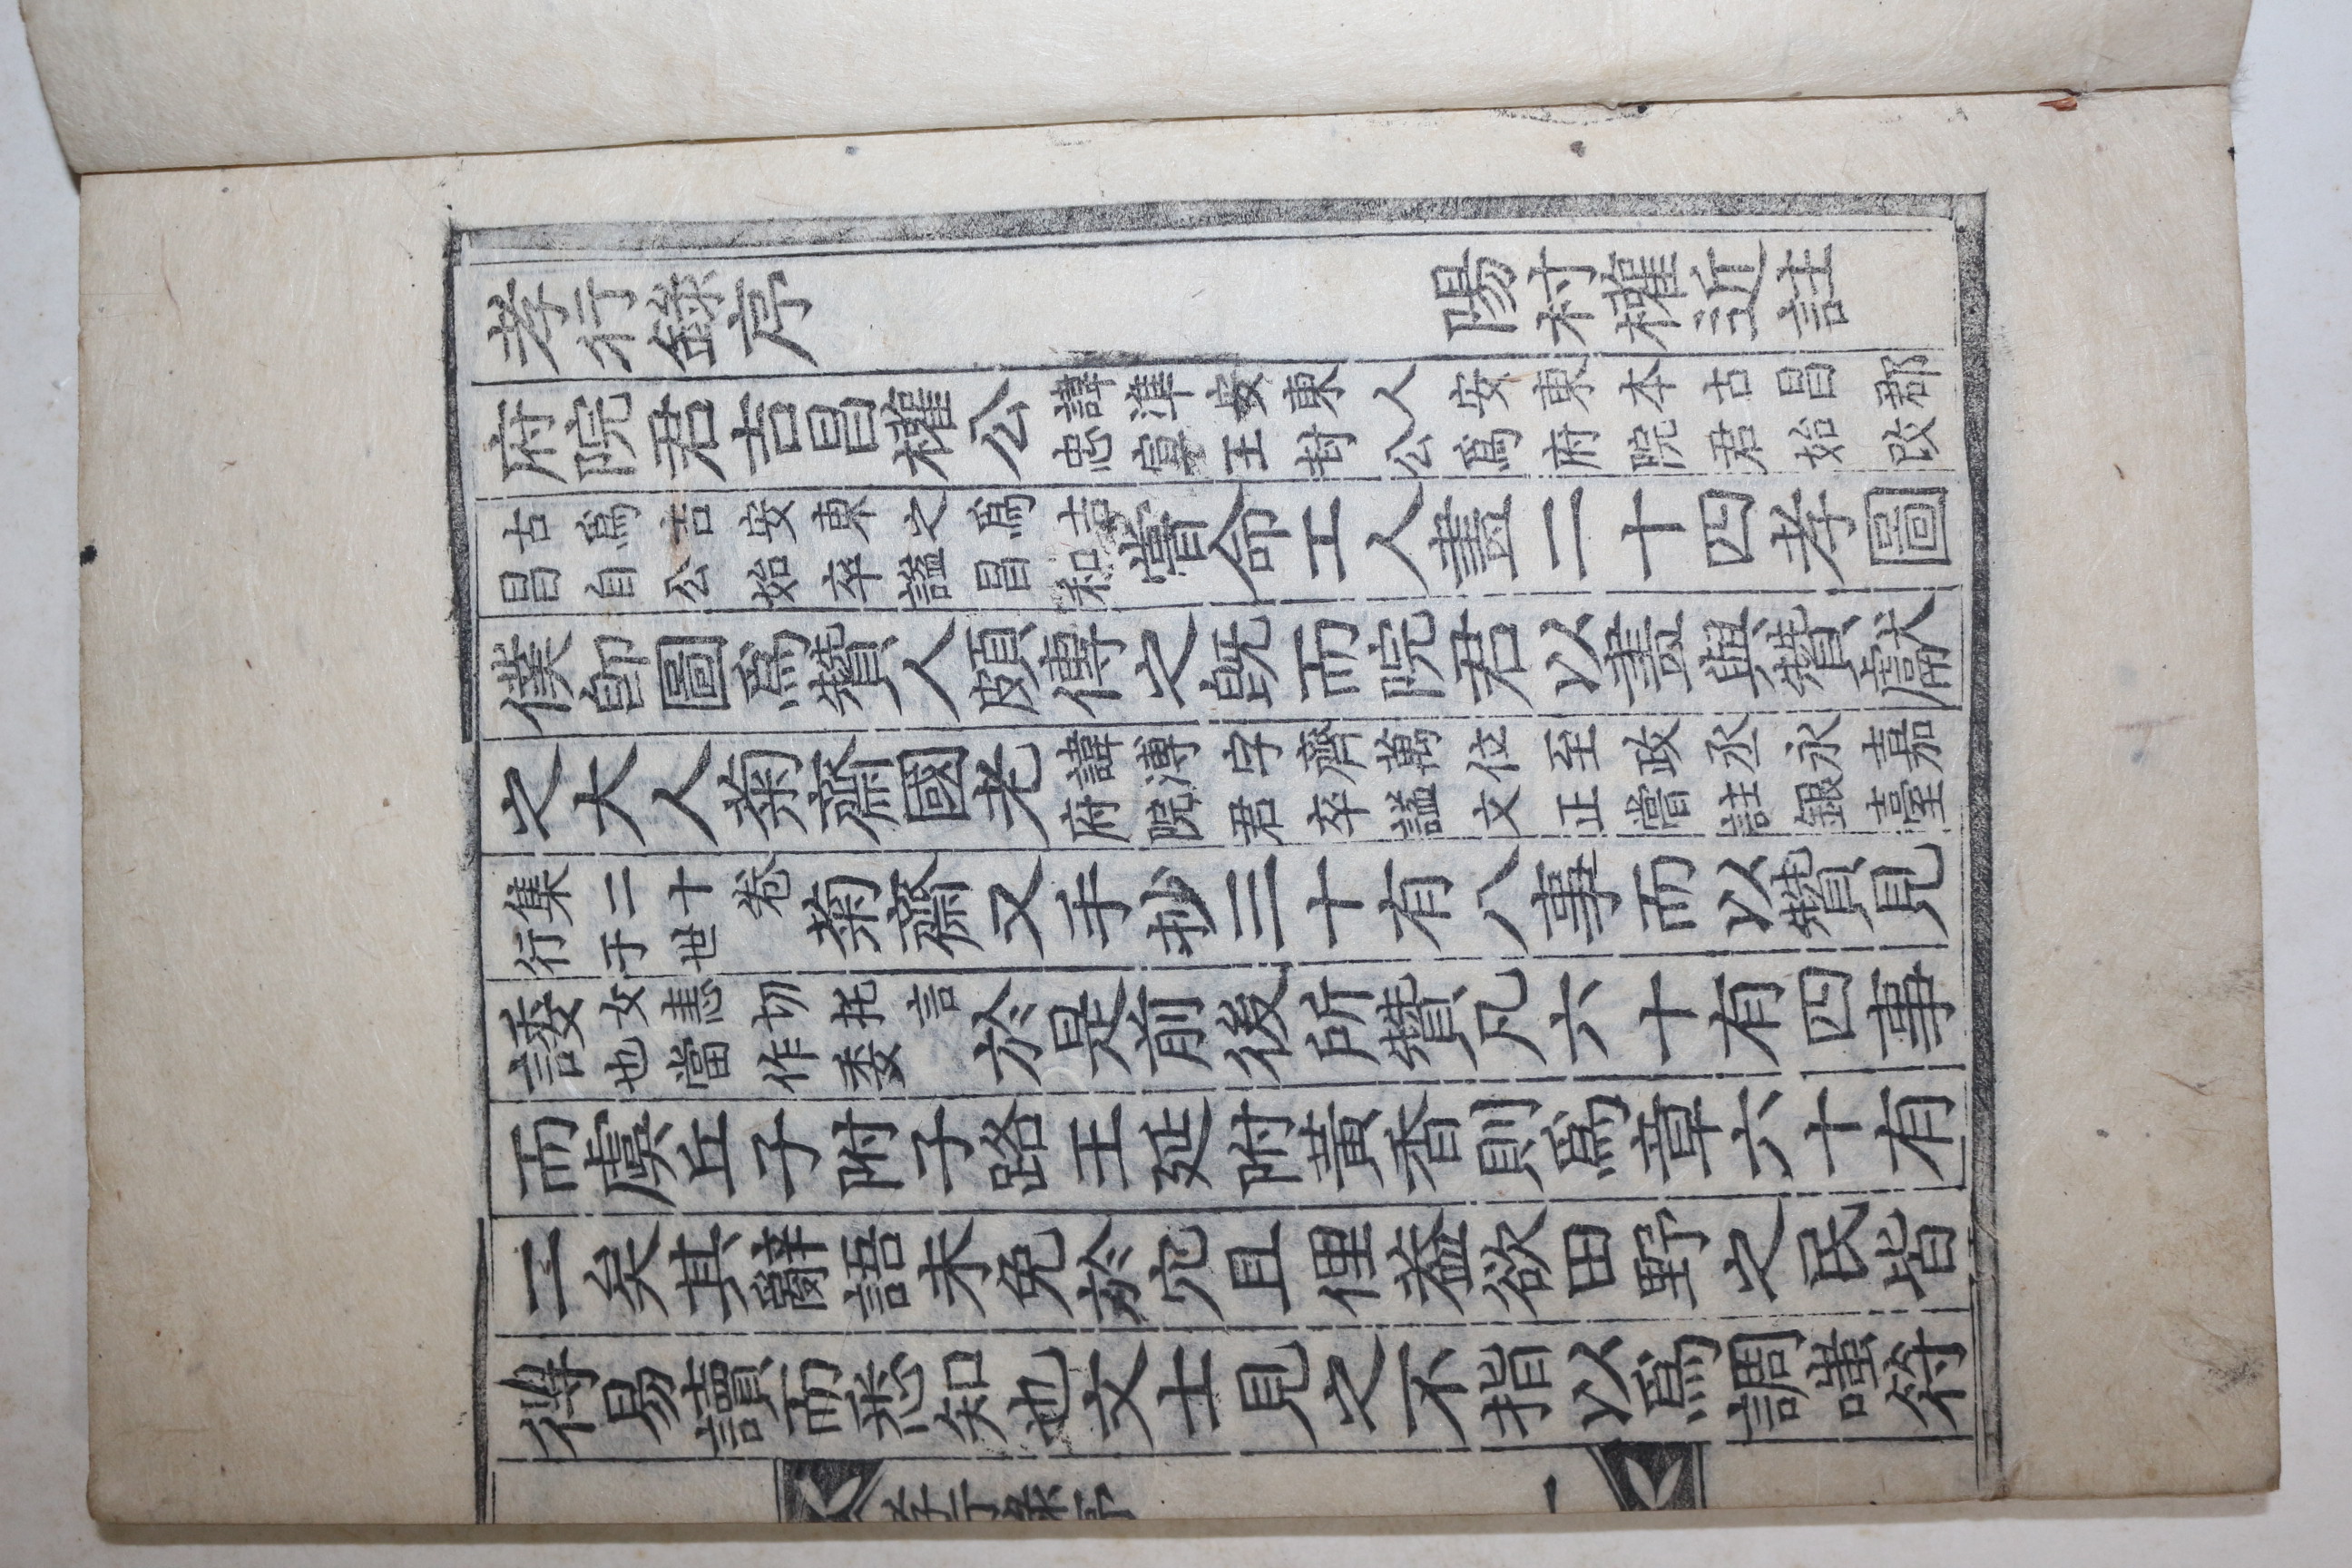 孝行錄序　陽村權近註
府院君吉昌權公諱準安東人安東本古昌郡忠㝎王封公爲府院君始改
古爲吉安東之爲吉昌自公始卒謚昌和嘗命工人畫二十四孝圖
僕卽圖爲贊人頗傳之旣而院君以畫與贊獻
之大人菊齋國老諱溥字齊萬位至政丞永嘉府院君卒謚文正嘗註銀臺
集二十卷行于世菊齋又手抄三十有八事而以贊見
諉女恚切托言也當作委於是前後所贊凡六十有四事
而虞丘子附子路王延附黃香則爲章六十有
二矣其辭語未免於冗且俚葢欲田野之民皆
得易讀而悉知也文士見之不指以爲調嗤符
孝行錄序　一